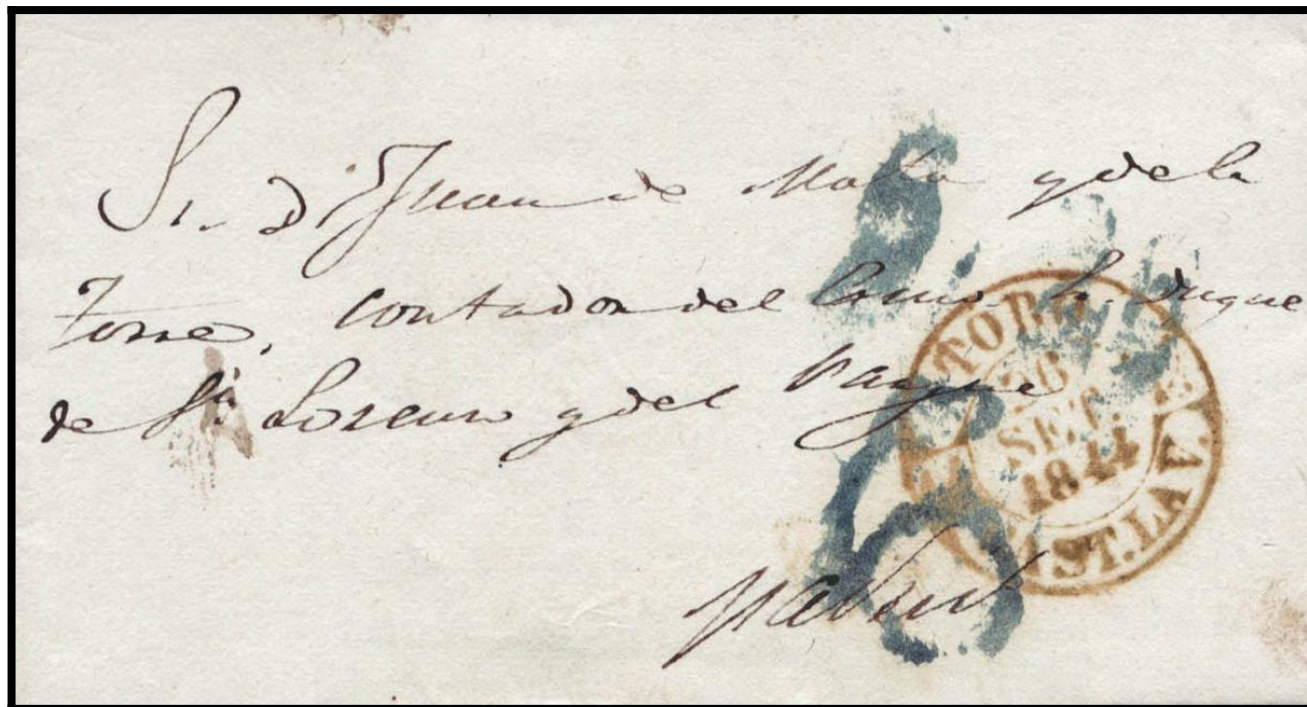 Sr. Dn Juan de Mata y de la
Torre, contador del Excmo. Sr. Duque
de Sn. Lorenzo y del Parque
Madrid
TORO
26
SET.
1844
CAST. LA V.
6